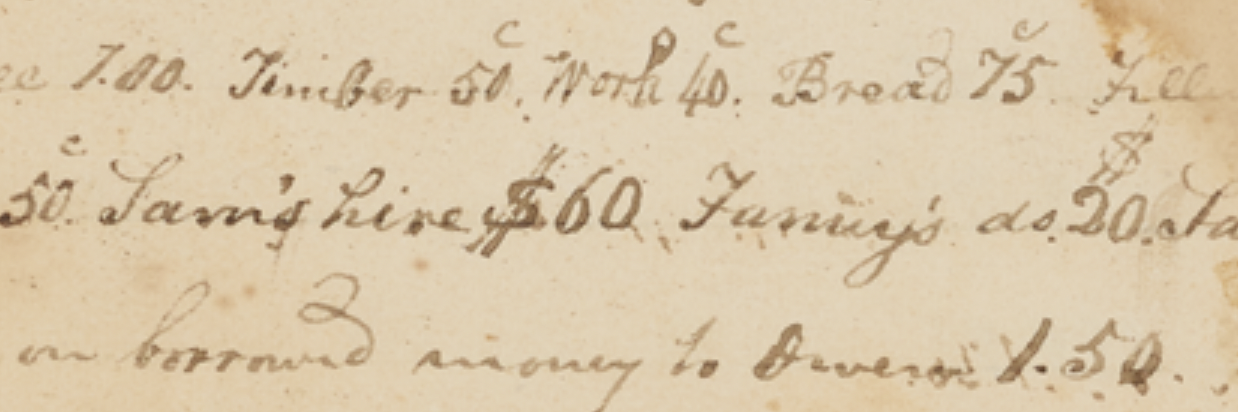 7.00. Timber 50.c Work 40.c Bread 75c
50.c Sam's hire $60 Fanny's do. $20.
on borrowed money to Owens 1.50.